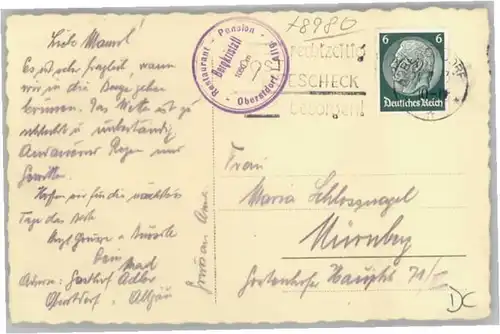 *8980
Restaurant - Pension - Café
Bergkristall
1050m
Oberstdorf
rechtzeitig
SCHECK
besorgen!
6 6
Deutsches Reich
Liebe Mama!
Es ist sehr fraglich, wann
wir in die Berge gehen
können. Das Wetter ist zu
schlecht u. unbeständig
Andauernd Regen und
Gewitter.
Hoffen wir für die nächsten
Tage das Beste
Herzl. Grüße
Dein
Adresse: Gasthof Adler
Oberstdorf - Allgäu
Frau
Maria Schlossnagel
Nürnberg
Gostenhofer Hauptstr.
DC